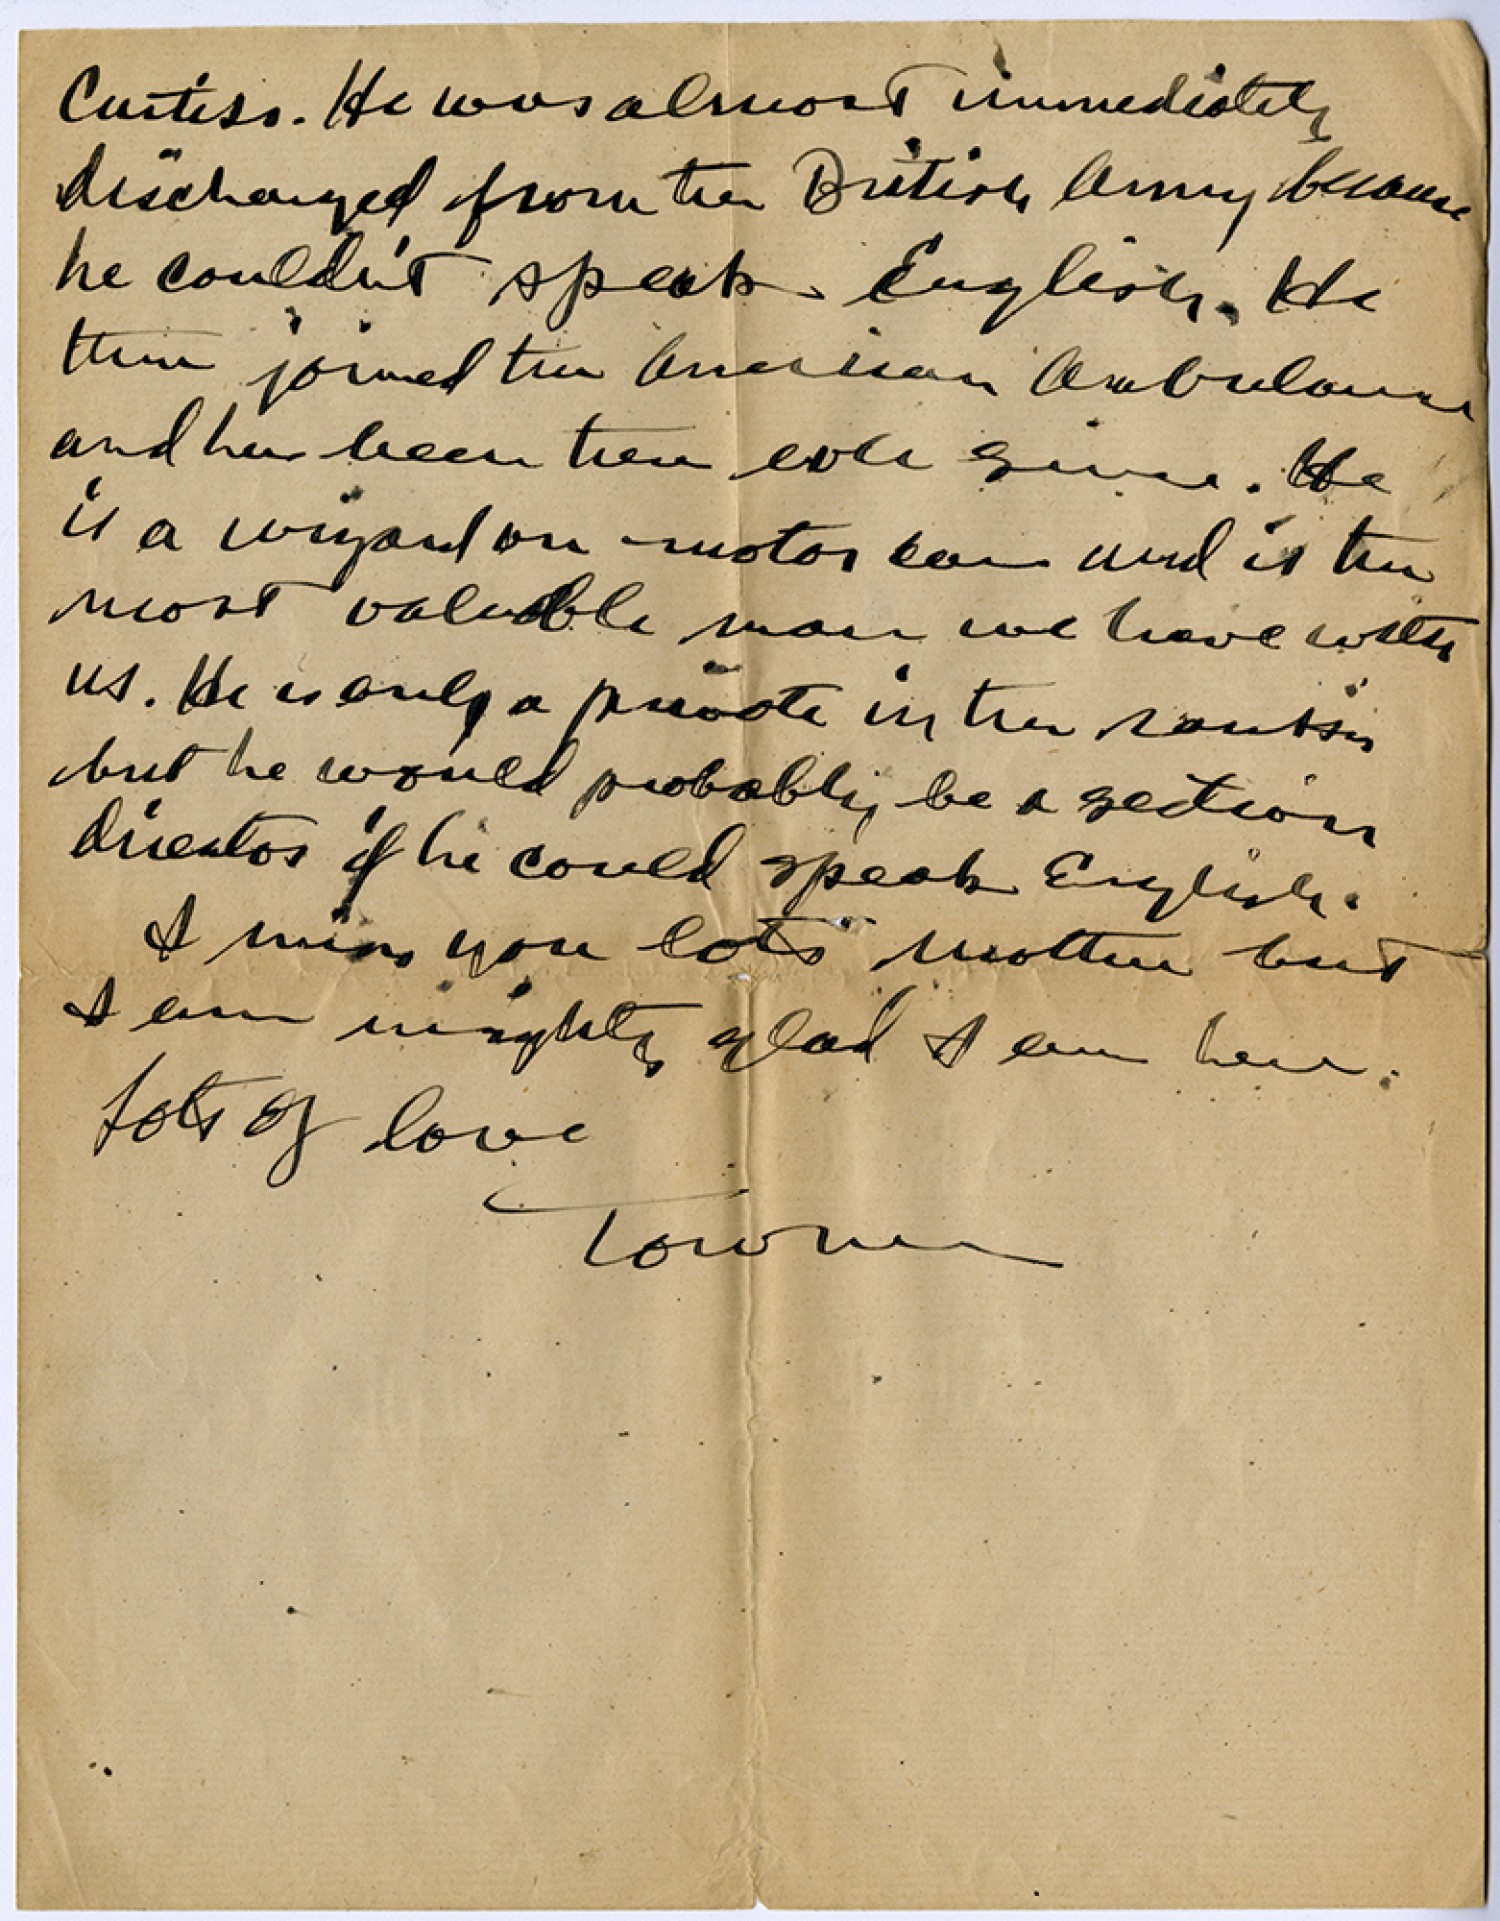 Curtiss. He was almost immediately
discharged from the British Army because
he couldn't speak English. He
then joined the American Ambulance
and has been there ever since. He
is a wizard on motor cars and is the
most valuable man we have with
us. He is only a private in the ranks
but he would probably be a section
director if he could speak English.
I miss you lots Mother but
I am mighty glad I am here.
Lots of love